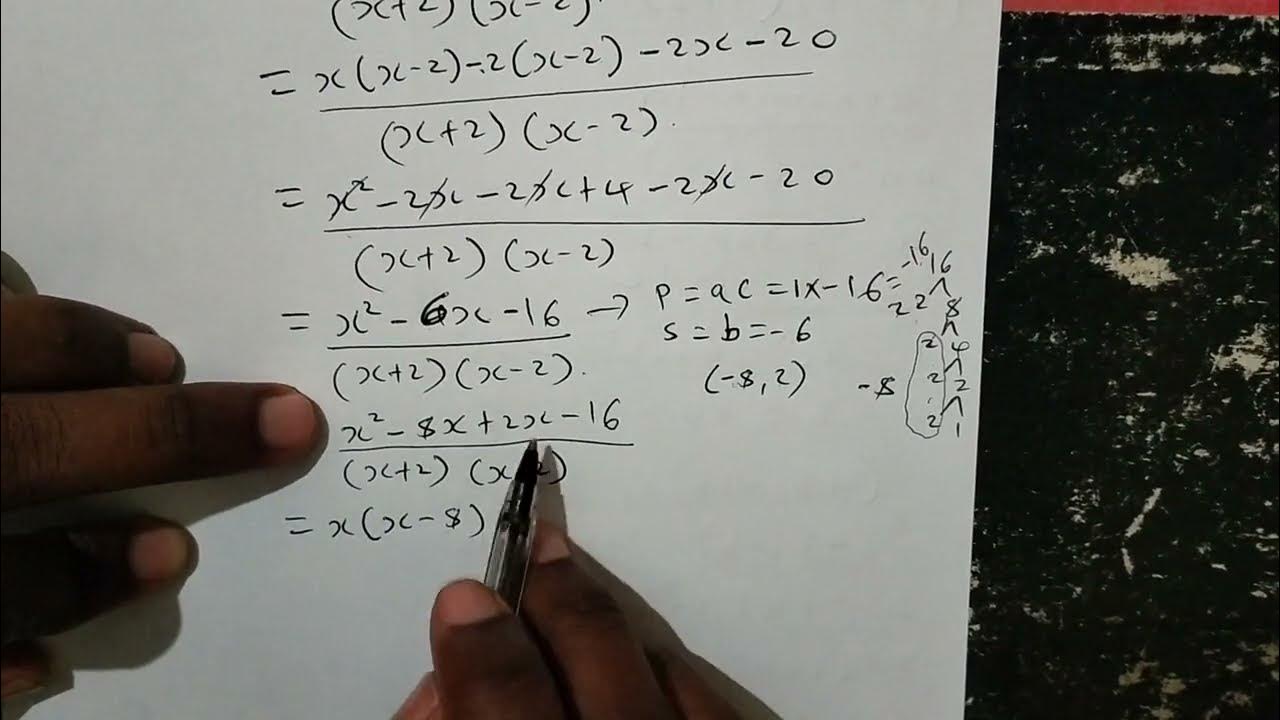 (x+2)(x-2)
= x(x-2)-2(x-2) -2x-20
(x+2)(x-2).
= x²-2x-2x+4-2x-20
(x+2)(x-2)
= x²-6x-16 → P = ac = 1x-16 = -16
(x+2)(x-2).
s = b = -6
(-8,2)
x²-8x+2x-16
(x+2)(x-2)
= x(x-8)
16
2 2 8
2 4
-8 2 2
2 1